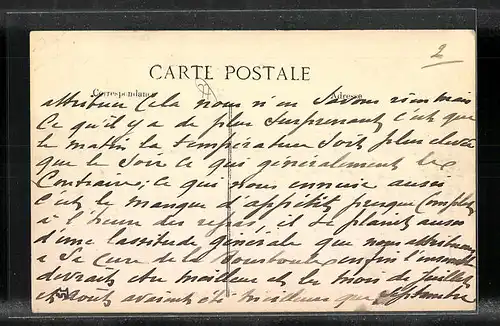 2
CARTE POSTALE
Correspondance
Adresse
attribuer cela nous n'en savons rien mais
Ce qu'il y a de plus surprenant c'est que
le matin la température soit plus élevée
que le soir ce qui généralement le
Contraire; ce qui nous ennuie aussi
c'est le manque d'appétit presque complet
à l'heure des repas, il se plaint aussi
d'une lassitude générale que nous attribuons
a sa Cure de la Bourboule enfin l'ensemble
devrait être meilleur et les mois de Juillet
et Août avaient été meilleurs que Septembre